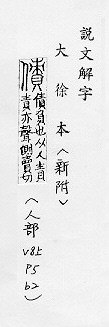 說文解字
大徐本〈新附〉
債 債負也从人責
責亦聲側賣切
(人部 V8上 P5 b2)